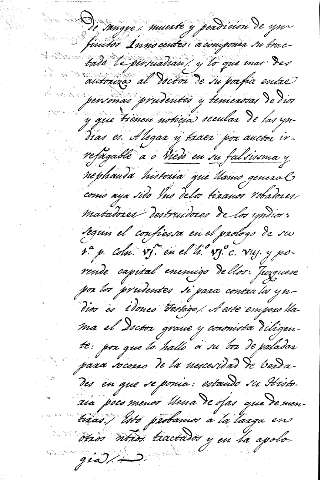 de sangre, muerte y perdicion de yn-
finitos Innocentes: a compania su trac-
tado le persuadia/. y lo que mas des
autoriza al doctor de su porfia entre
personas prudentes y temerosas de dios
y que tienen noticia secular de las yn-
dias es. Alegar y traer por auctor ir-
refragable a o Viedo en su falsisima y
nephanda historia que llamo general
como aya sido Uno delos tiranos robadores
matadores destruidores de los yndios:
segun el confiesa en el prologo de su
pª p. coln. vj. en el lº. vjº c. viij. y po-
rende capital enemigo dellos. Juzguese
por los prudentes si para contra los yn-
dios es idoneo testigo/. A este empero lla-
ma el Doctor grave y coronista diligen-
te: por que lo hallo a su tor de paladar
para socorro de la necesidad de verda-
des en que se ponia: estando su Histo-
ria poco menos llena de ojas que de men-
tiras/. Esto probamos a la larga en
otros nros tractados y en la apolo-
gia/.